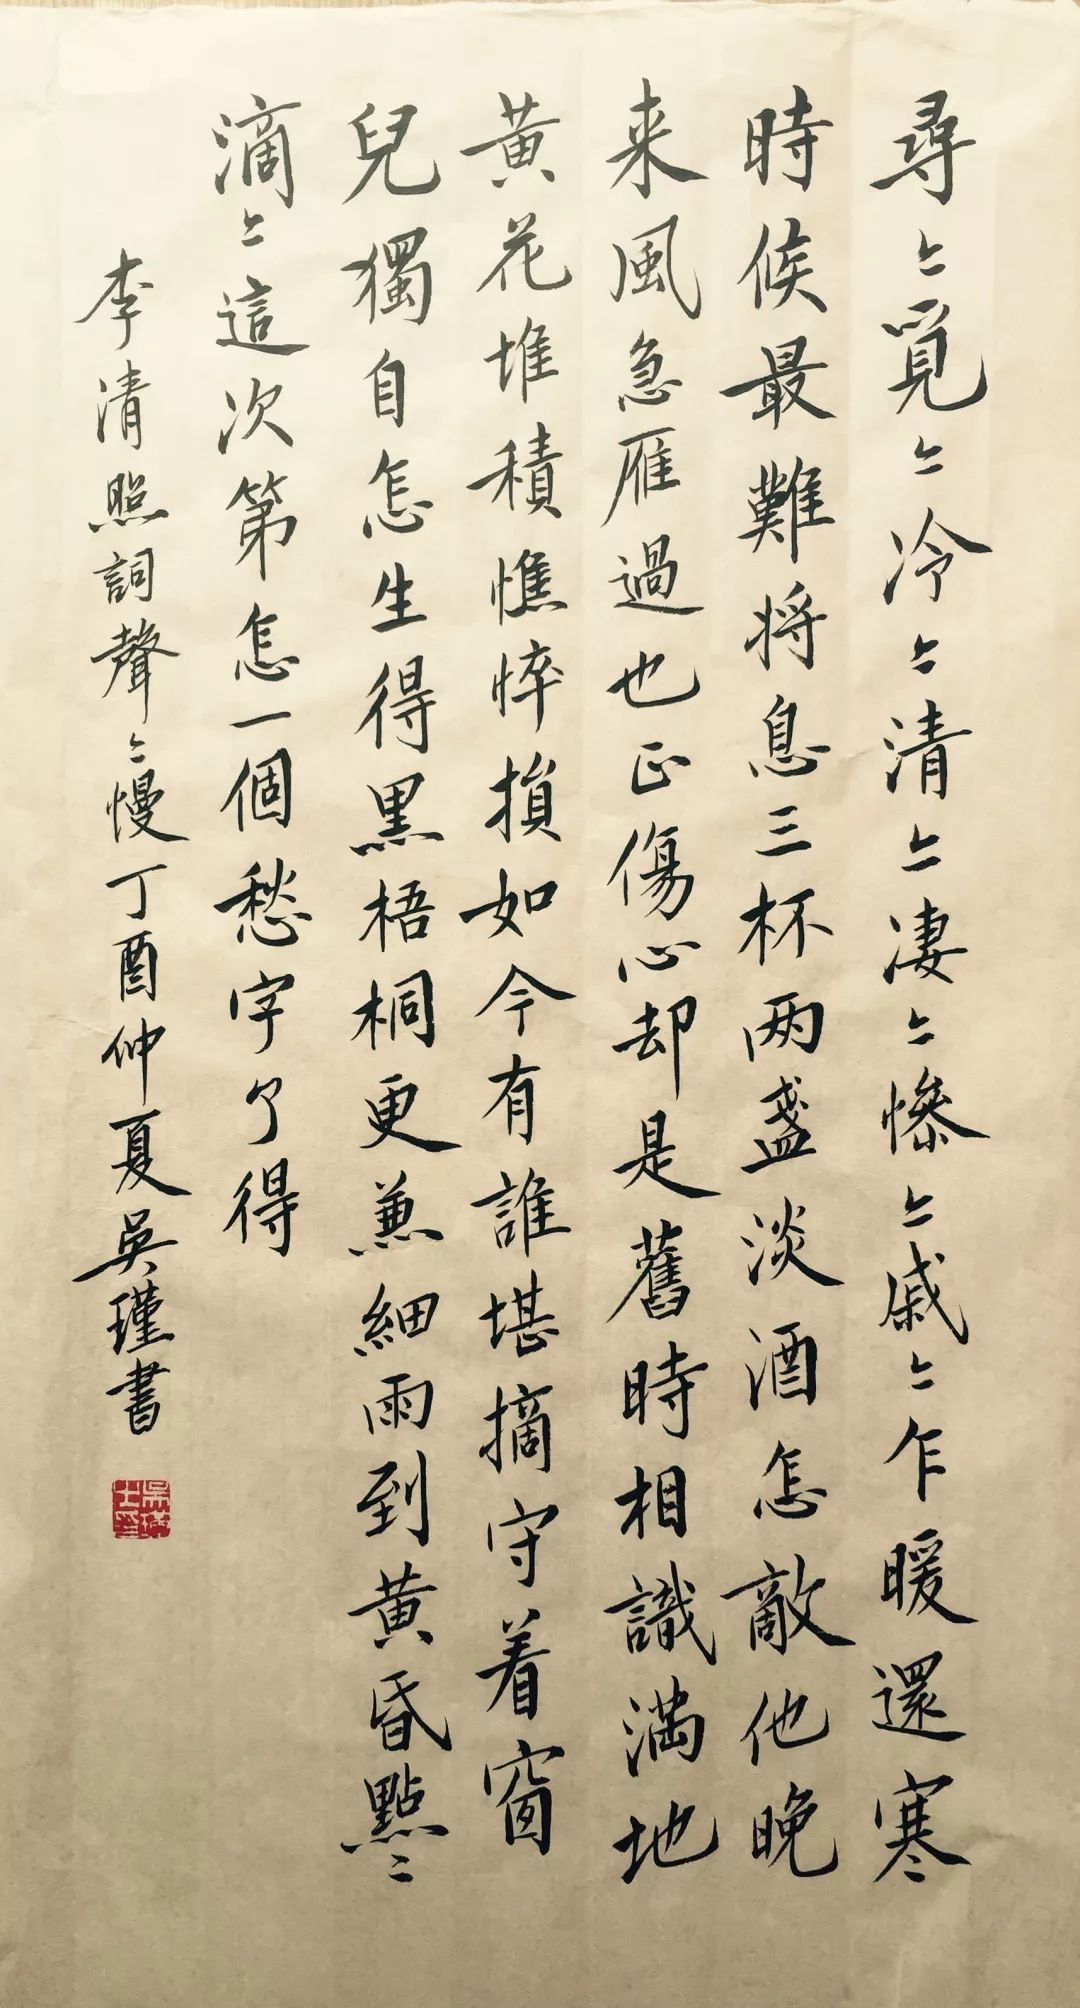 尋〻覓〻冷〻清〻凄〻慘〻戚〻乍暖還寒
時候最難将息三杯两盏淡酒怎敵他晚
来風急雁過也正傷心却是舊時相識满地
黄花堆積憔悴損如今有誰堪摘守着窗
兒獨自怎生得黑梧桐更兼細雨到黄昏點〻
滴〻這次第怎一個愁字了得
李清照詞聲〻慢丁酉仲夏吳瑾書